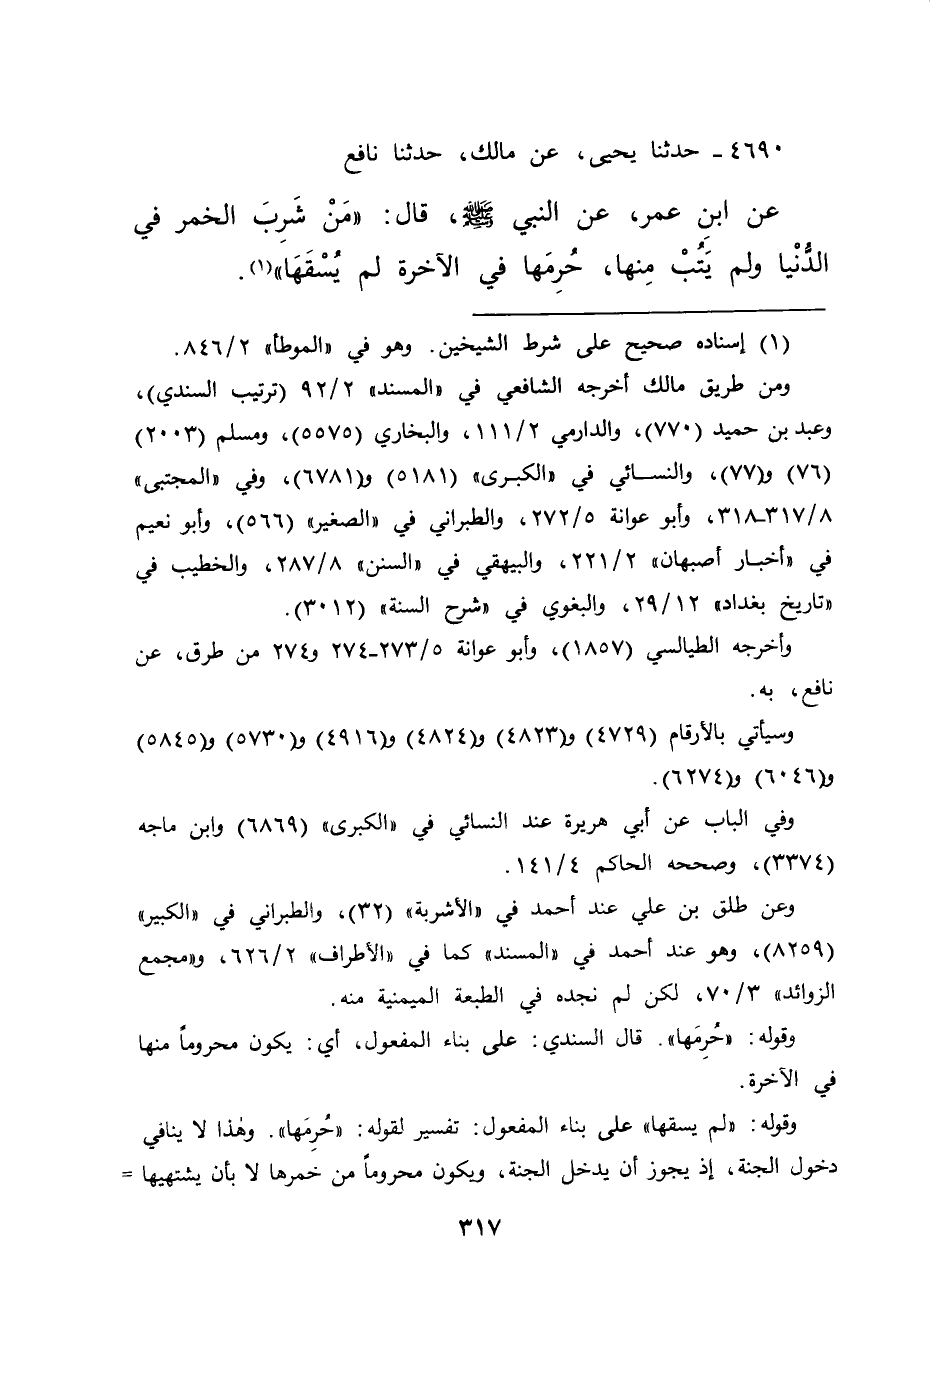 ٤٦٩٠ ـ حدثنا يحيى، عن مالك، حدثنا نافع
عن ابنِ عمر، عن النبي ﷺ، قال: «مَنْ شَرِبَ الخمر في
الدُّنْيا ولم يَتُبْ مِنها، حُرِمَها في الآخرة لم يُسْقَهَا»(١).
(١) إسناده صحيح على شرط الشيخين. وهو في «الموطأ» ٨٤٦/٢.
ومن طريق مالك أخرجه الشافعي في «المسند» ٩٢/٢ (ترتيب السندي)،
وعبد بن حميد (٧٧٠)، والدارمي ١١١/٢، والبخاري (٥٥٧٥)، ومسلم (٢٠٠٣)
(٧٦) و(٧٧)، والنسائي في «الكبرى» (٥١٨١) و(٦٧٨١)، وفي «المجتبى»
٣١٧/٨ـ٣١٨، وأبو عوانة ٢٧٢/٥، والطبراني في «الصغير» (٥٦٦)، وأبو نعيم
في «أخبار أصبهان» ٢٢١/٢، والبيهقي في «السنن» ٢٨٧/٨، والخطيب في
«تاريخ بغداد» ٢٩/١٢، والبغوي في «شرح السنة» (٣٠١٢).
وأخرجه الطيالسي (١٨٥٧)، وأبو عوانة ٢٧٣/٥ـ٢٧٤ و٢٧٤ من طرق، عن
نافع، به.
وسيأتي بالأرقام (٤٧٢٩) و(٤٨٢٣) و(٤٨٢٤) و(٤٩١٦) و(٥٧٣٠) و(٥٨٤٥)
و(٦٠٤٦) و(٦٢٧٤).
وفي الباب عن أبي هريرة عند النسائي في «الكبرى» (٦٨٦٩) وابن ماجه
(٣٣٧٤)، وصححه الحاكم ١٤١/٤.
وعن طلق بن علي عند أحمد في «الأشربة» (٣٢)، والطبراني في «الكبير»
(٨٢٥٩)، وهو عند أحمد في «المسند» كما في «الأطراف» ٦٢٦/٢، و«مجمع
الزوائد» ٧٠/٣، لكن لم نجده في الطبعة الميمنية منه.
وقوله: «حُرِمَها». قال السندي: على بناء المفعول، أي: يكون محروماً منها
في الآخرة.
وقوله: «لم يسقها» على بناء المفعول: تفسير لقوله: «حُرِمَها». وهٰذا لا ينافي
دخول الجنة، إذ يجوز أن يدخل الجنة، ويكون محروماً من خمرها لا بأن يشتهيها =
٣١٧